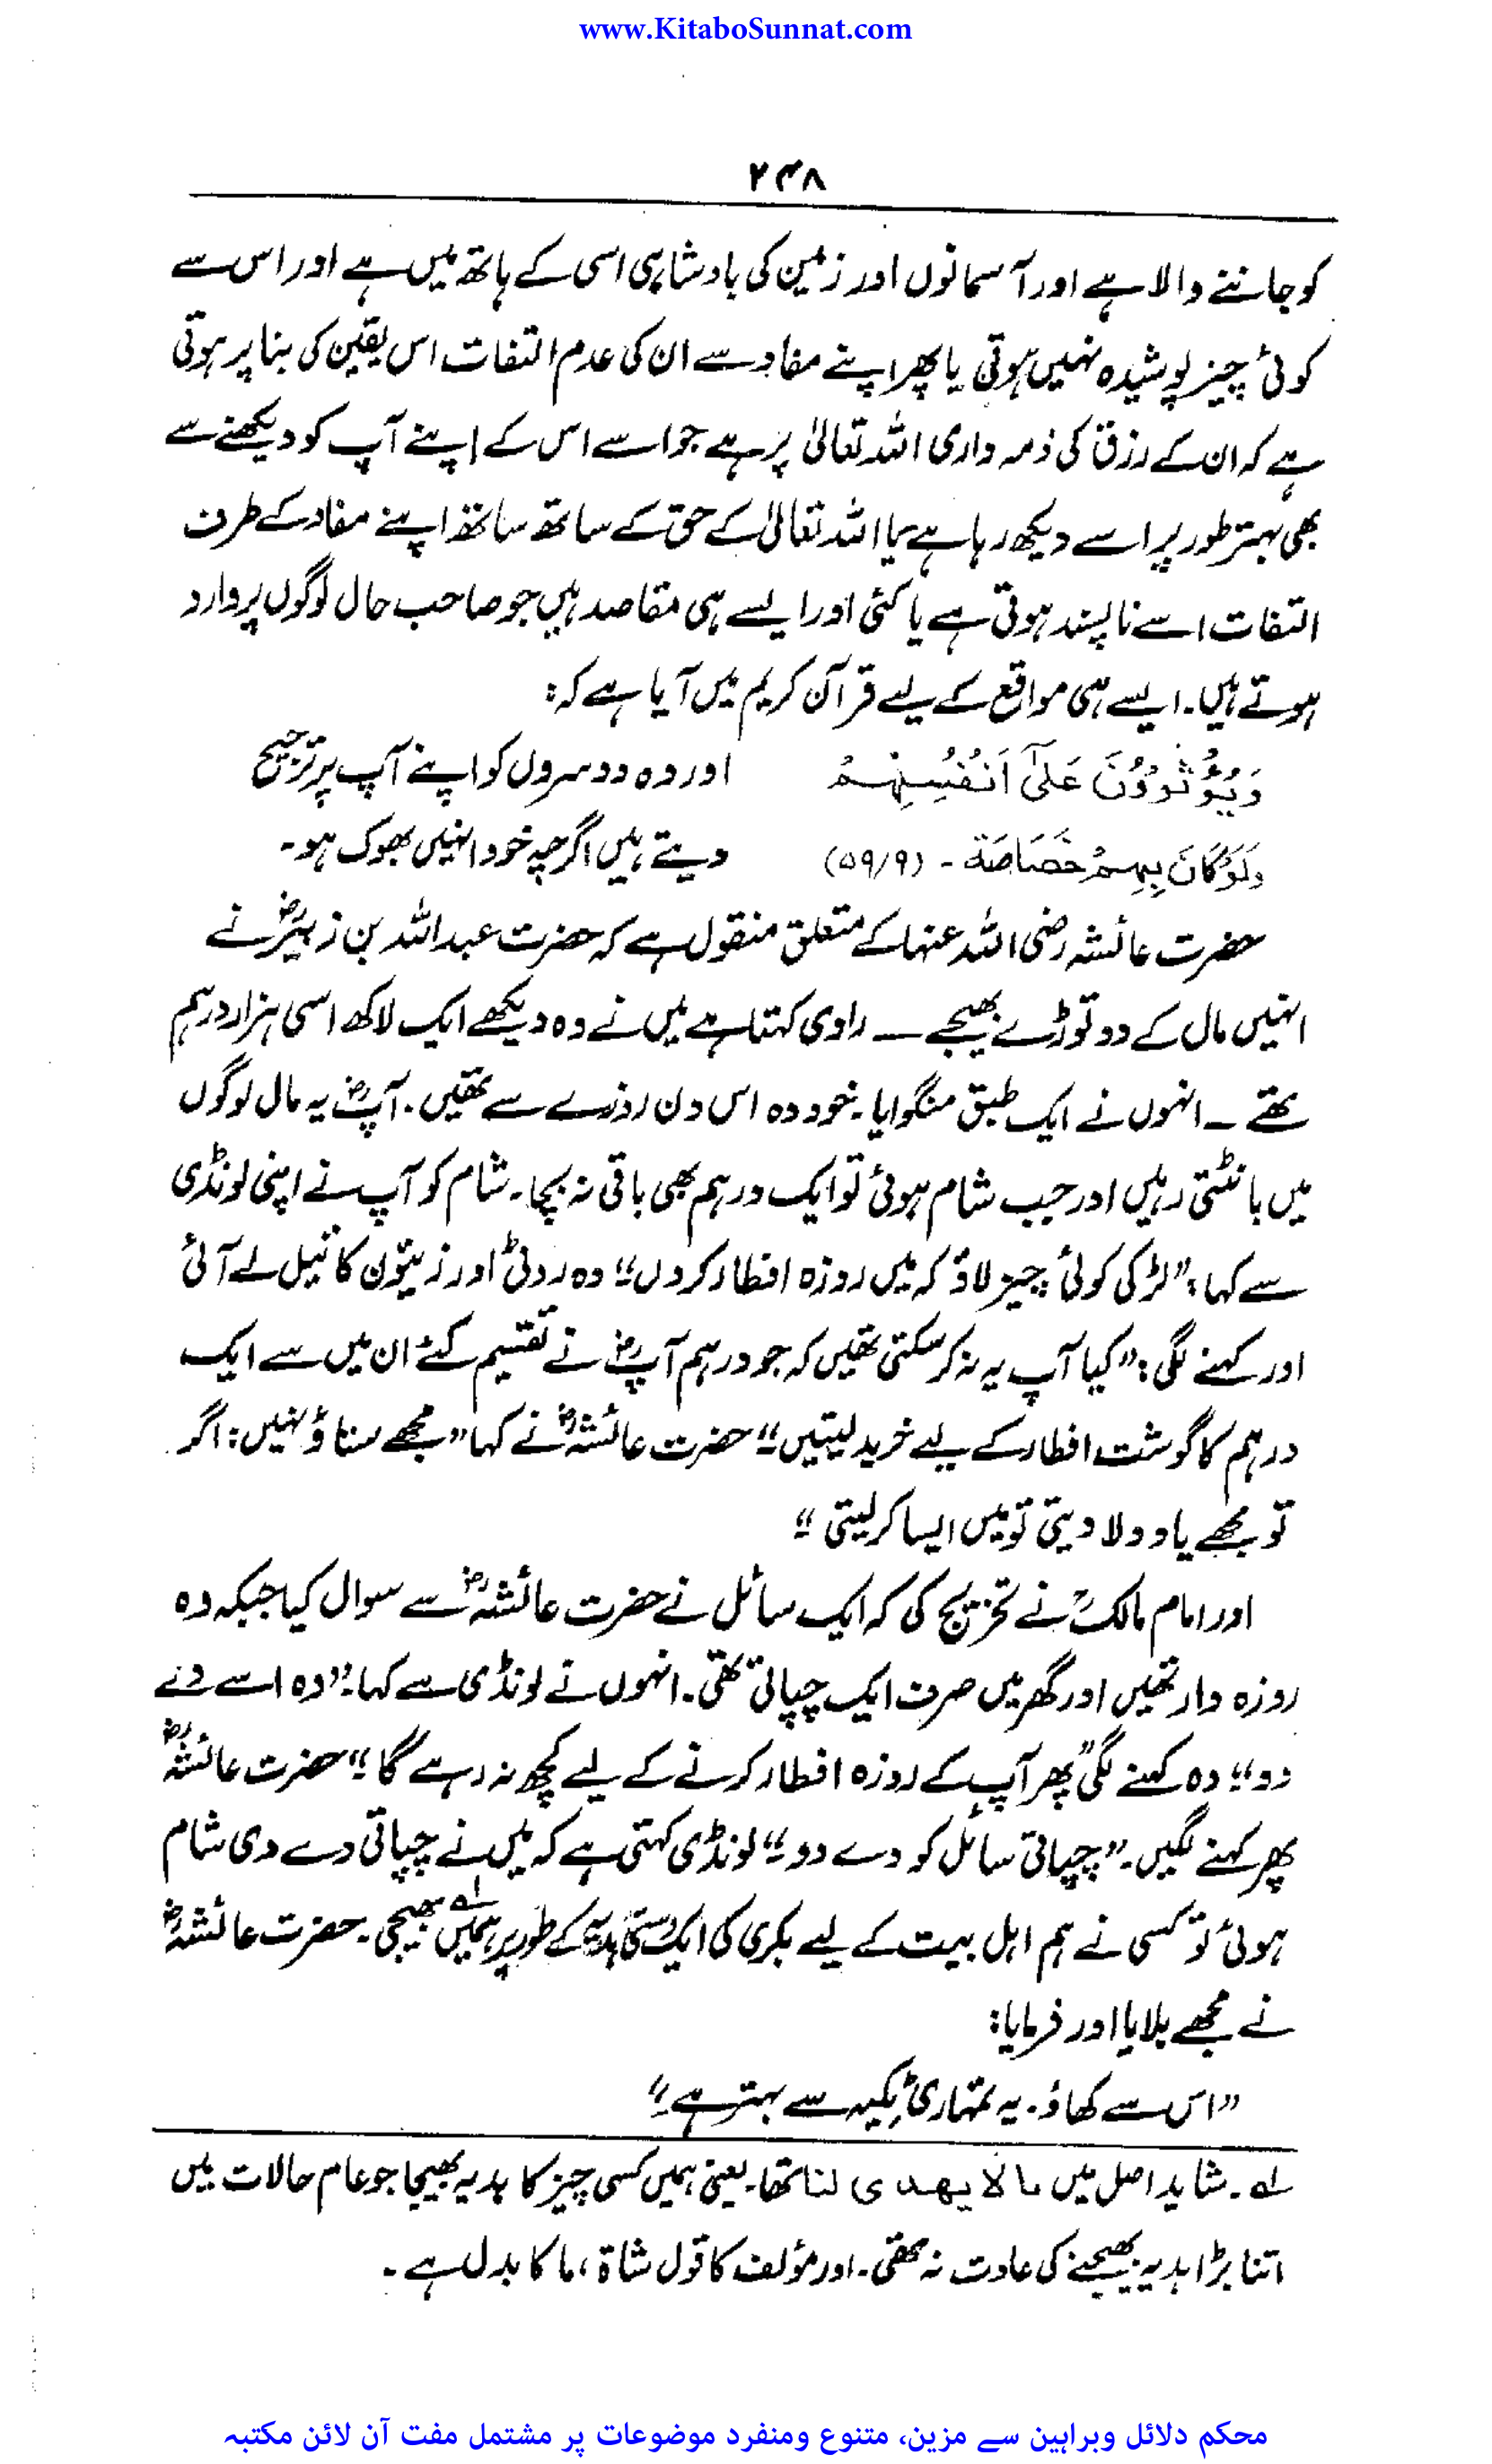 www.KitaboSunnat.com
۲۴۸
کو جاننے والا ہے اور آسمانوں اور زمین کی بادشاہی اسی کے ہاتھ میں ہے اور اس سے
کوئی چیز پوشیدہ نہیں ہوتی یا پھر اپنے مفاد سے ان کی عدم التفات اس یقین کی بنا پر ہوتی
ہے کہ ان کے رزق کی ذمہ داری اللہ تعالیٰ پر ہے جو اسے اس کے اپنے آپ کو دیکھنے سے
بھی بہتر طور پر اسے دیکھ رہا ہے یا اللہ تعالیٰ کے حق کے ساتھ ساتھ اپنے مفاد کے طرف
التفات اسے ناپسند ہوتی ہے یا کئی اور ایسے ہی مقاصد ہیں جو صاحب حال لوگوں پر وارد
ہوتے ہیں۔ ایسے ہی مواقع کے لیے قرآن کریم میں آیا ہے کہ:
وَیُؤْثِرُوْنَ عَلٰۤی اَنْفُسِہِمْ اور وہ دوسروں کو اپنے آپ پر ترجیح
وَلَوْ کَانَ بِہِمْ خَصَاصَة - (۵۹/۹) دیتے ہیں اگرچہ خود انہیں بھوک ہو۔
حضرت عائشہ رضی اللہ عنہا کے متعلق منقول ہے کہ حضرت عبداللہ بن زبیرؓ نے
انہیں مال کے دو توڑے بھیجے ــ راوی کہتا ہے میں نے وہ دیکھے ایک لاکھ اسی ہزار درہم
تھے ــ انہوں نے ایک طبق منگوایا۔ خود وہ اس دن روزے سے تھیں۔ آپؓ یہ مال لوگوں
میں بانٹتی رہیں اور جب شام ہوئی تو ایک درہم بھی باقی نہ بچا۔ شام کو آپ نے اپنی لونڈی
سے کہا: ”لڑکی کوئی چیز لاؤ کہ میں روزہ افطار کروں“ وہ روٹی اور زیتون کا تیل لے آئی
اور کہنے لگی: ”کیا آپ یہ نہ کر سکتی تھیں کہ جو درہم آپؓ نے تقسیم کئے ان میں سے ایک
درہم کا گوشت افطار کے لیے خرید لیتیں“ حضرت عائشہؓ نے کہا ”مجھے سناؤ نہیں: اگر
تو مجھے یاد دلا دیتی تو میں ایسا کر لیتی“
اور امام مالکؒ نے تخریج کی کہ ایک سائل نے حضرت عائشہؓ سے سوال کیا جبکہ وہ
روزہ دار تھیں اور گھر میں صرف ایک چپاتی تھی۔ انہوں نے لونڈی سے کہا: ”وہ اسے دے
دو“ وہ کہنے لگی ”پھر آپ کے روزہ افطار کرنے کے لیے کچھ نہ رہے گا“ حضرت عائشہؓ
پھر کہنے لگیں۔ ”چپاتی سائل کو دے دو“ لونڈی کہتی ہے کہ میں نے چپاتی دے دی شام
ہوئی تو کسی نے ہم اہل بیت کے لیے بکری کی ایک دستی ہدیہ کے طور پر ہمیں بھیجی۔ لے حضرت عائشہؓ
نے مجھے بلایا اور فرمایا:
”اس سے کھاؤ۔ یہ تمہاری ٹکیہ سے بہتر ہے“
لے۔ شاید اصل میں مالا یھدی لنا تھا۔ یعنی ہمیں کسی چیز کا ہدیہ بھیجا جو عام حالات میں
اتنا بڑا ہدیہ بھیجنے کی عادت نہ تھی۔ اور مؤلف کا قول شاۃ، ما کا بدل ہے۔
محکم دلائل وبراہین سے مزین، متنوع ومنفرد موضوعات پر مشتمل مفت آن لائن مکتبہ